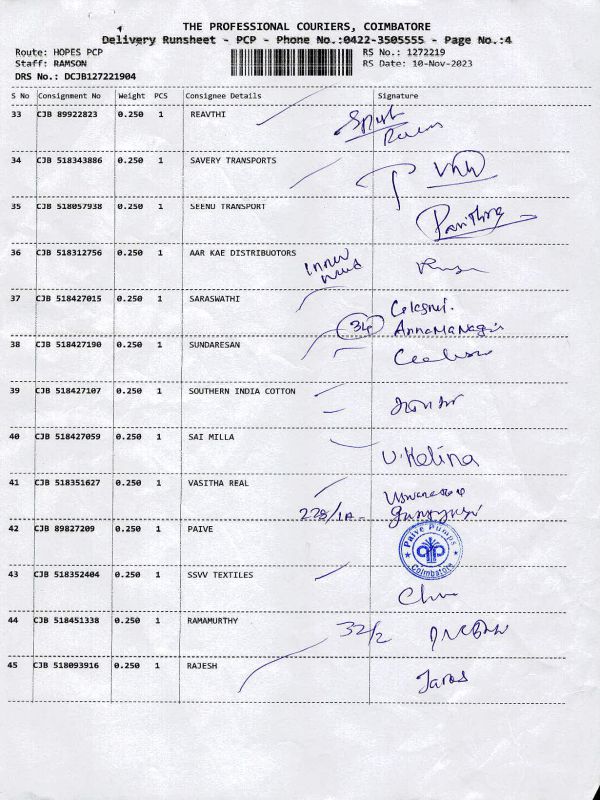 THE PROFESSIONAL COURIERS, COIMBATORE
Delivery Runsheet - PCP - Phone No.:0422-3505555 - Page No.:4
Route: HOPES PCP RS No.: 1272219
Staff: RAMSON RS Date: 10-Nov-2023
DRS No.: DCJB127221904
S No Consignment No Weight PCS Consignee Details Signature
33 CJB 89922823 0.250 1 REAVTHI
34 CJB 518343886 0.250 1 SAVERY TRANSPORTS
35 CJB 518057938 0.250 1 SEENU TRANSPORT
36 CJB 518312756 0.250 1 AAR KAE DISTRIBUOTORS
37 CJB 518427015 0.250 1 SARASWATHI
34
38 CJB 518427190 0.250 1 SUNDARESAN
39 CJB 518427107 0.250 1 SOUTHERN INDIA COTTON
40 CJB 518427059 0.250 1 SAI MILLA
41 CJB 518351627 0.250 1 VASITHA REAL
228/1A-
42 CJB 89827209 0.250 1 PAIVE
Paive Pumps
Coimbatore
43 CJB 518352404 0.250 1 SSVV TEXTILES
44 CJB 518451338 0.250 1 RAMAMURTHY 32/2
45 CJB 518093916 0.250 1 RAJESH